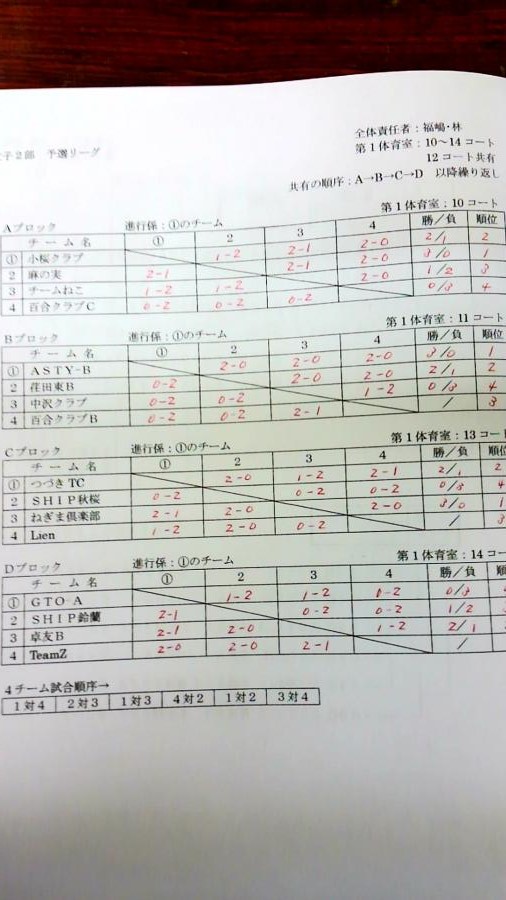 子2部 予選リーグ
全体責任者：福嶋・林
第1体育室：10～14コート
12コート共有
共有の順序：A→B→C→D 以降繰り返し
Aブロック 進行係：①のチーム 第1体育室：10コート
チーム名 ① 2 3 4 勝/負 順位
① 小桜クラブ 1-2 2-1 2-0 2/1 2
2 麻の実 2-1 2-1 2-0 3/0 1
3 チームねこ 1-2 1-2 2-0 1/2 3
4 百合クラブC 0-2 0-2 0-2 0/3 4
Bブロック 進行係：①のチーム 第1体育室：11コート
チーム名 ① 2 3 4 勝/負 順位
① ASTY-B 2-0 2-0 2-0 3/0 1
2 荏田東B 0-2 2-0 2-0 2/1 2
3 中沢クラブ 0-2 0-2 1-2 0/3 4
4 百合クラブB 0-2 0-2 2-1 / 3
Cブロック 進行係：①のチーム 第1体育室：13コート
チーム名 ① 2 3 4 勝/負 順位
① つづきTC 2-0 1-2 2-1 2/1 2
2 SHIP秋桜 0-2 0-2 0-2 0/3 4
3 ねぎま倶楽部 2-1 2-0 2-0 3/0 1
4 Lien 1-2 2-0 0-2 / 3
Dブロック 進行係：①のチーム 第1体育室：14コー
チーム名 ① 2 3 4 勝/負 順
① GTO-A 1-2 1-2 0-2 0/3
2 SHIP鈴蘭 2-1 0-2 0-2 1/2
3 卓友B 2-1 2-0 1-2 2/1
4 TeamZ 2-0 2-0 2-1 /
4チーム試合順序→
1対4 2対3 1対3 4対2 1対2 3対4